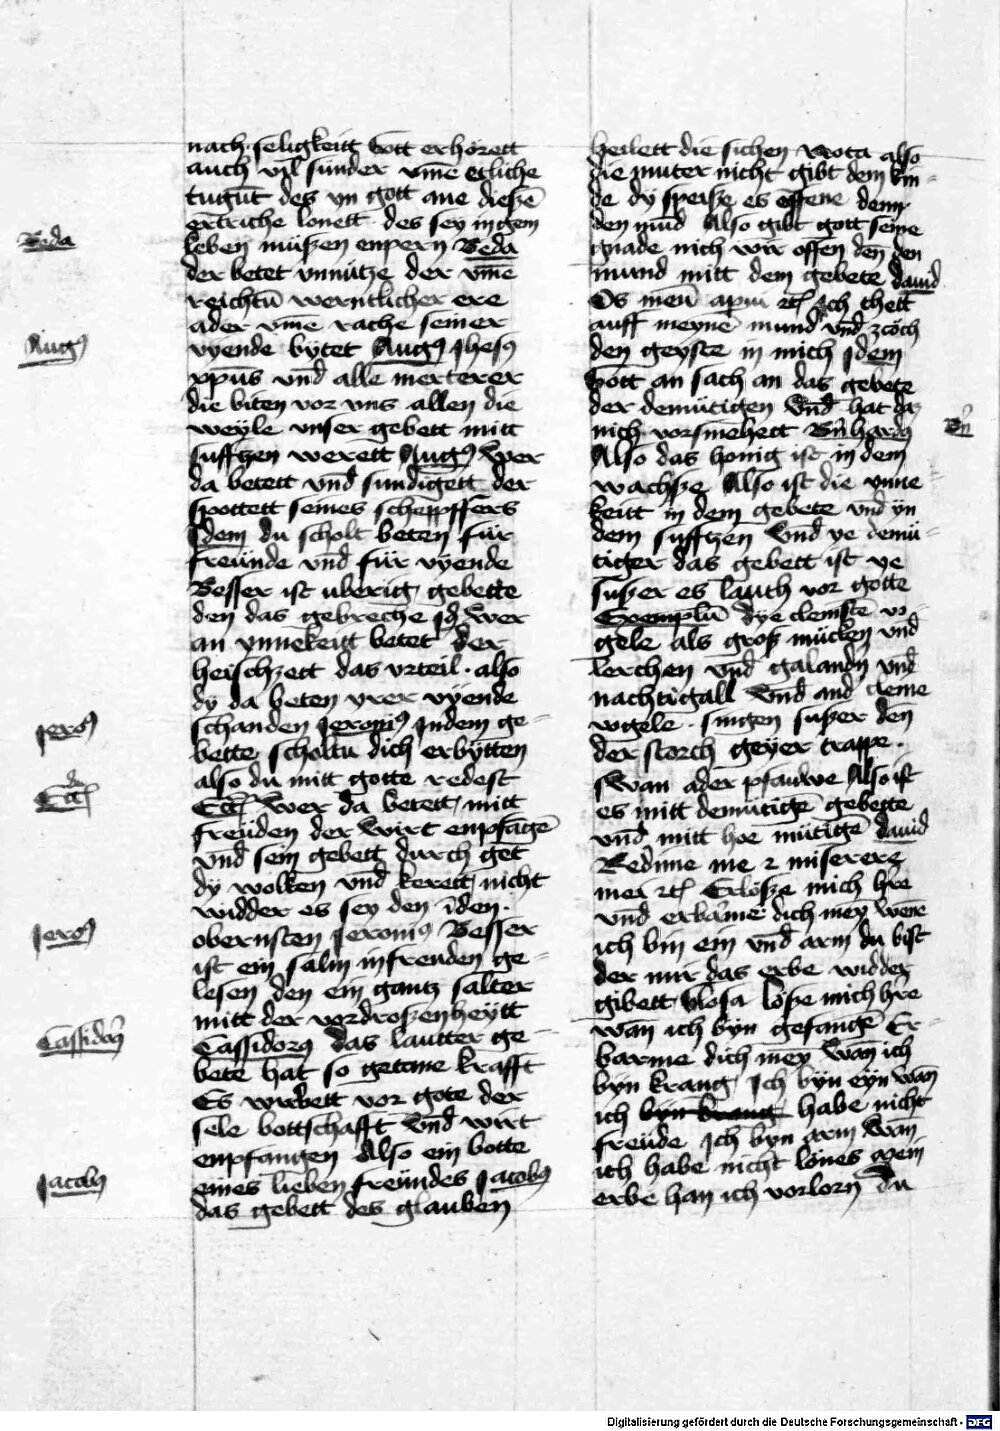 nach seligkeitt Gott erhörett
auch vil sünder vm̄e etliche
tugūt des yn gott ane dieszē
ertriche lonett · des sey in gem
leben müszen enpern Beda
der betet vnnütze der vm̄e
reichtū werntlicher ere
ader vm̄e rache seiner
vyende bÿtet Augꝰ Jhesꝰ
xpūs vnd alle merterer
die biten vor vns allen die
weyle vnser gebett mitt
sufftzen werett Augꝰ Wer
da betett vnd sundigett der
spottett seines schepffers
Jdem du scholt beten für
freünde vnd für vyende
Besser ist uberig gebette
den das gebreche Jd Wer
an ynnekeitt betet der
heischzett das vrteil · also
dy da beten yrer vyende
schanden Jeronꝰ Jndem ge-
bette scholtu dich erbytten
also du mitt gotte redest
Eccꝉ Wer da betett mitt
freüden der Wirt enpfāgē
vnd sein gebett durch get
dy wolken vnd kerett nicht
widder es sey den īden ·
obernsten Jeronꝰ Besser
ist ein salm in freuden ge-
lesen den ein gantz salter
mitt der vordroszenheytt
Cassidorꝰ das lautter ge-
bete hat so getane krafft
Es wirbett vor gote der
sele bottschafft vnd wirt
enpfangen Also ein botte
eines lieben freündes Jacobꝰ
das gebett des glauben
Beda
Augꝰ
Jeroꝰ
Eccꝉ
Jeroꝰ
Cassidorꝰ
Jacobꝰ
heilett die sichen Nota also
die muter nicht gibt dem kin-
de dy speisze es offene denn
den mūd Also gibt gott seine
gnade nich wir offen den den
mund mitt dem gebete dauid
Os meū apui ꝛcꝉ Jch thett
auff meynē mund vnd zcoch
den geyste in mich Jdem
Gott an sach an das gebete
der demütigen Vnd hat das
nich vorsmehett Bn̄hardꝰ
Also das honig ist in dem
wachsze Also ist die ynne-
keitt in dem gebete vnd yn
dem sufftzen Vnd ye demü-
tiger das gebett ist ye
suszer es lauth vor gotte
Exemplū dye clemste vo-
gele als grosz mücken vnd
lerchen vnd galandn vnd
nachtigall Vnd and cleine
vogele · singen suszer den
der storch geyer trappe ·
swan ader pfauwe Also ist
es mitt demütigē gebette
vnd mitt hoe mütigē dauid
Redime me ⁊ miserere
mei ꝛcꝉ Erlösze mich h're
vnd erbarme dich mey Wene
ich bin ein vnd arm du bist
der mir das erbe widder
gibett Glosa lösze mich h're
wan ich byn gefangē Er-
barme dich mey Wan ich
byn krang Jch byn eyn Wan
ich byn krang habe nicht
freüde Jch byn arm Wan
ich habe nicht lönes mein
erbe han ich vorlorn Du
Bn̄